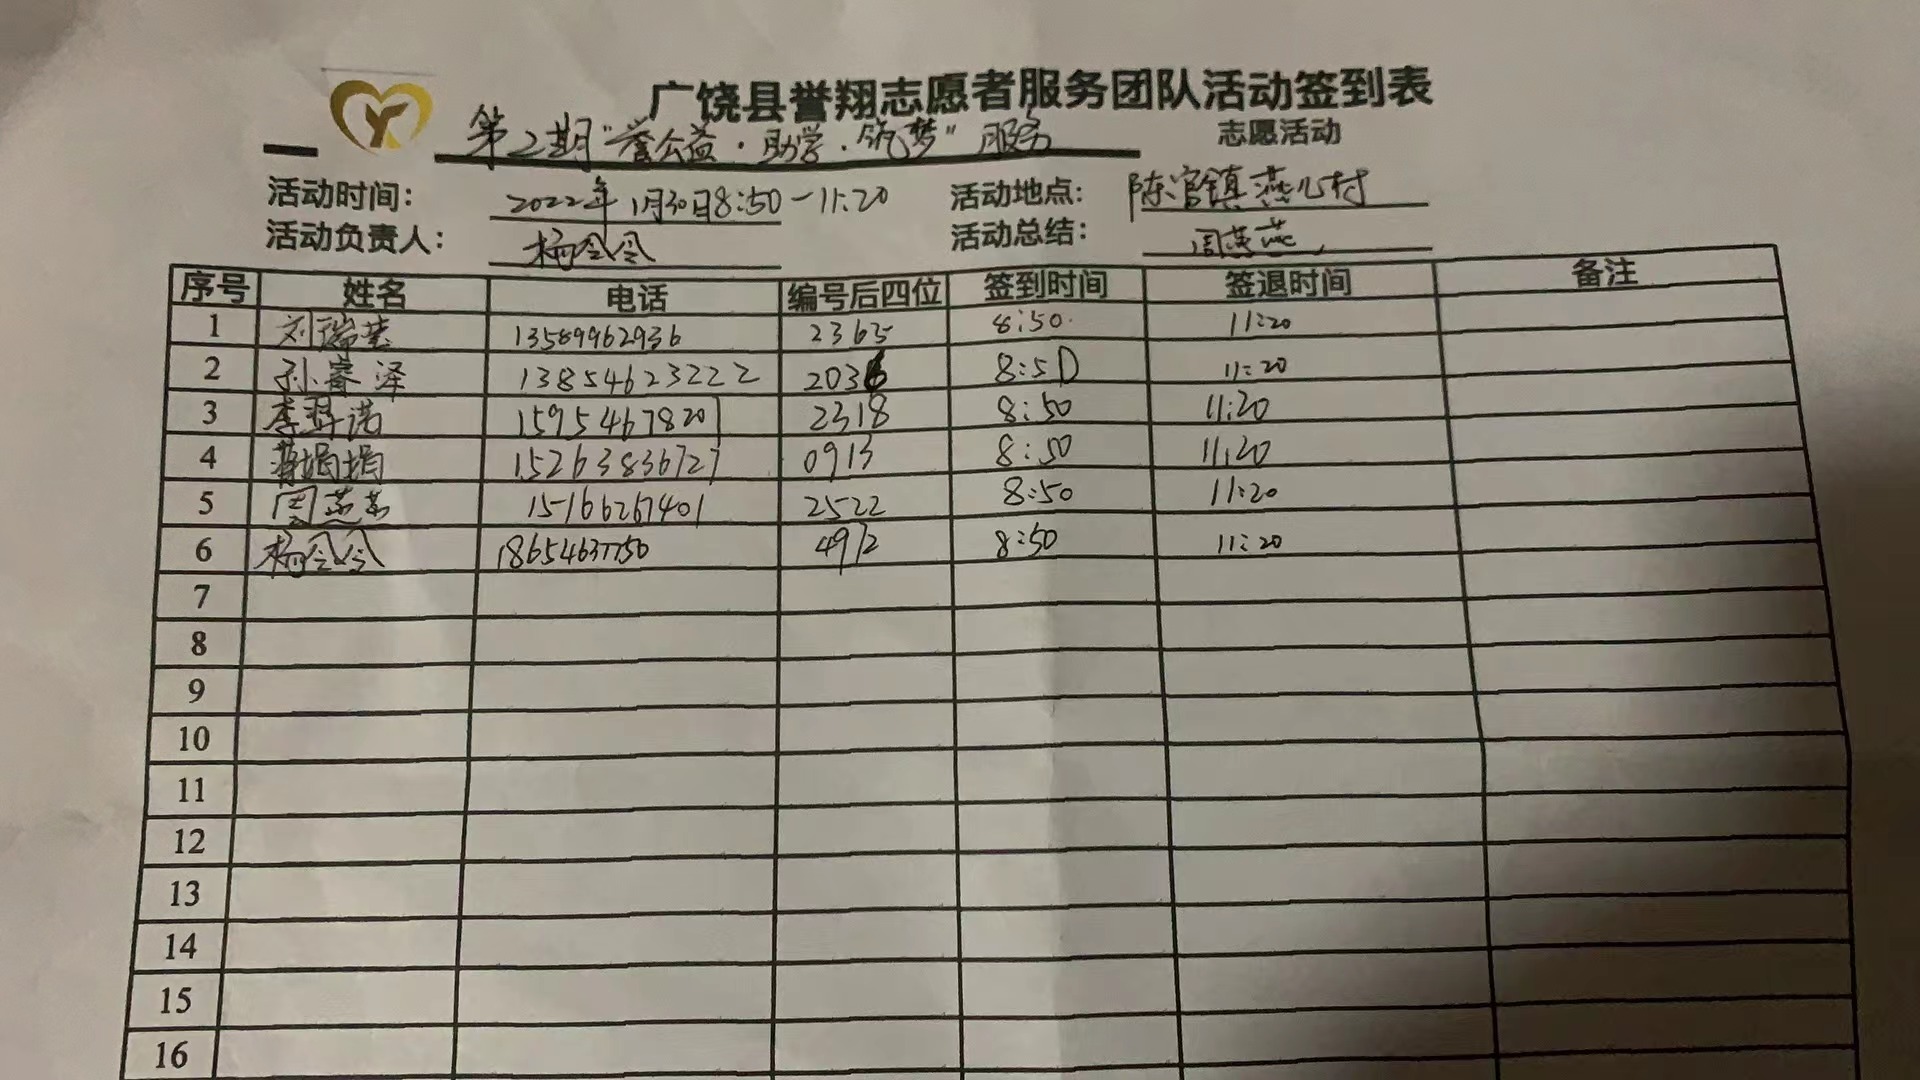 广饶县誉翔志愿者服务团队活动签到表
第2期"誉公益·助学·筑梦"服务 志愿活动
活动时间: 2022年1月30日8:50-11:20 活动地点: 陈官镇燕儿村
活动负责人: 杨令令 活动总结: 周燕燕
序号 姓名 电话 编号后四位 签到时间 签退时间 备注
1 刘瑞 13589962936 2365 8:50 11:20
2 孙睿泽 13854623222 2036 8:50 11:20
3 李 诺 15954678201 2318 8:50 11:20
4 蒋娟娟 15263836727 0913 8:50 11:20
5 周燕燕 15166267401 2522 8:50 11:20
6 杨令令 18654637750 4972 8:50 11:20
7
8
9
10
11
12
13
14
15
16